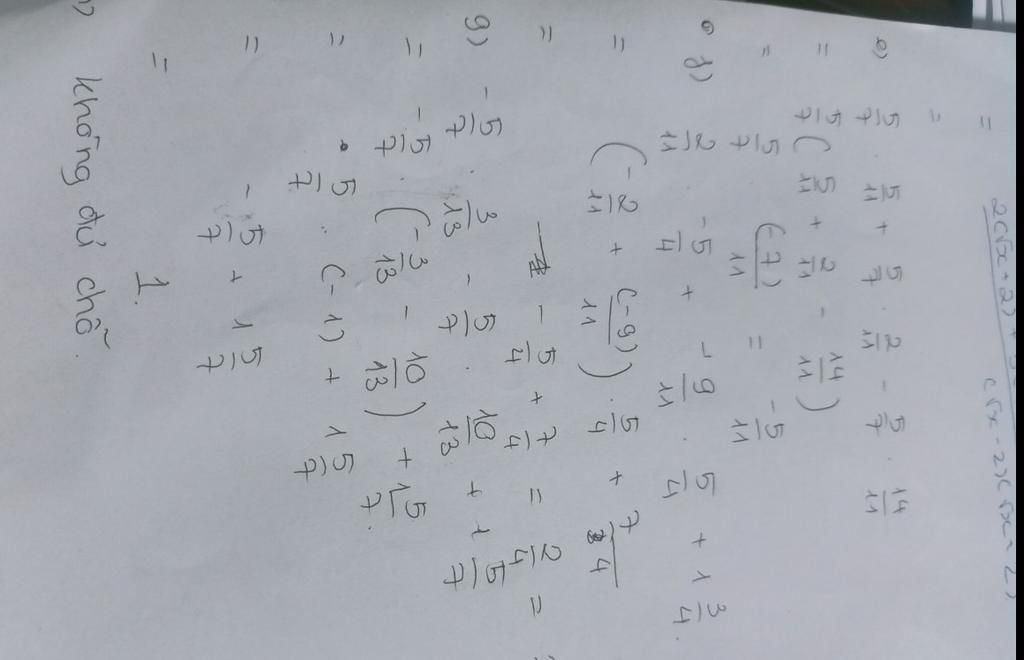 =
=
e) 5/7 . 5/11 + 5/7 . 2/11 - 5/7 . 14/11
= 5/7 ( 5/11 + 2/11 - 14/11 )
= 5/7 (-7)/11 = -5/11
f) 2/11 . -5/4 + -9/11 . 5/4 + 1 3/4.
= ( -2/11 + (-9)/11 ) . 5/4 + 7/4
= - 5/4 + 7/4 = 2/4 =
g) - 5/7 . 3/13 - 5/7 . 10/13 + 1 5/7
= - 5/7 . ( - 3/13 - 10/13 ) + 1 5/7.
= 5/7 . (-1) + 1 5/7
= - 5/7 + 1 5/7
= 1.
không đủ chỗ.